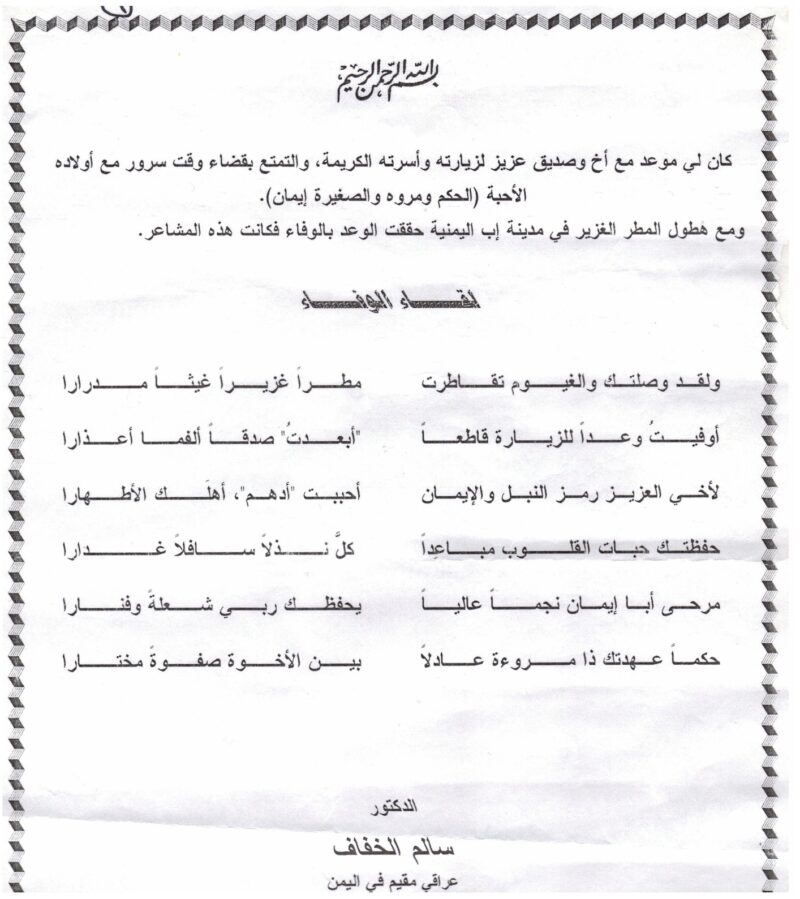 بسم الله الرحمن الرحيم
كان لي موعد مع أخ وصديق عزيز لزيارته وأسرته الكريمة، والتمتع بقضاء وقت سرور مع أولاده
الأحبة (الحكم ومروه والصغيرة إيمان).
ومع هطول المطر الغزير في مدينة إب اليمنية حققت الوعد بالوفاء فكانت هذه المشاعر.
لقاء الوفاء
ولقد وصلتك والغيوم تقاطرت مطراً غزيراً غيثاً مدرارا
أوفيتُ وعداً للزيارة قاطعاً "أبعدتُ" صدقاً ألفما أعذارا
لأخي العزيز رمز النبل والإيمان أحببت "أدهم"، أهلَك الأطهارا
حفظتك حبات القلوب مباعِداً كلَّ نذلاً سافلاً غدارا
مرحى أبا إيمان نجماً عالياً يحفظك ربي شعلةً وفنارا
حكماً عهدتك ذا مروءة عادلاً بين الأخوة صفوةً مختارا
الدكتور
سالم الخفاف
عراقي مقيم في اليمن